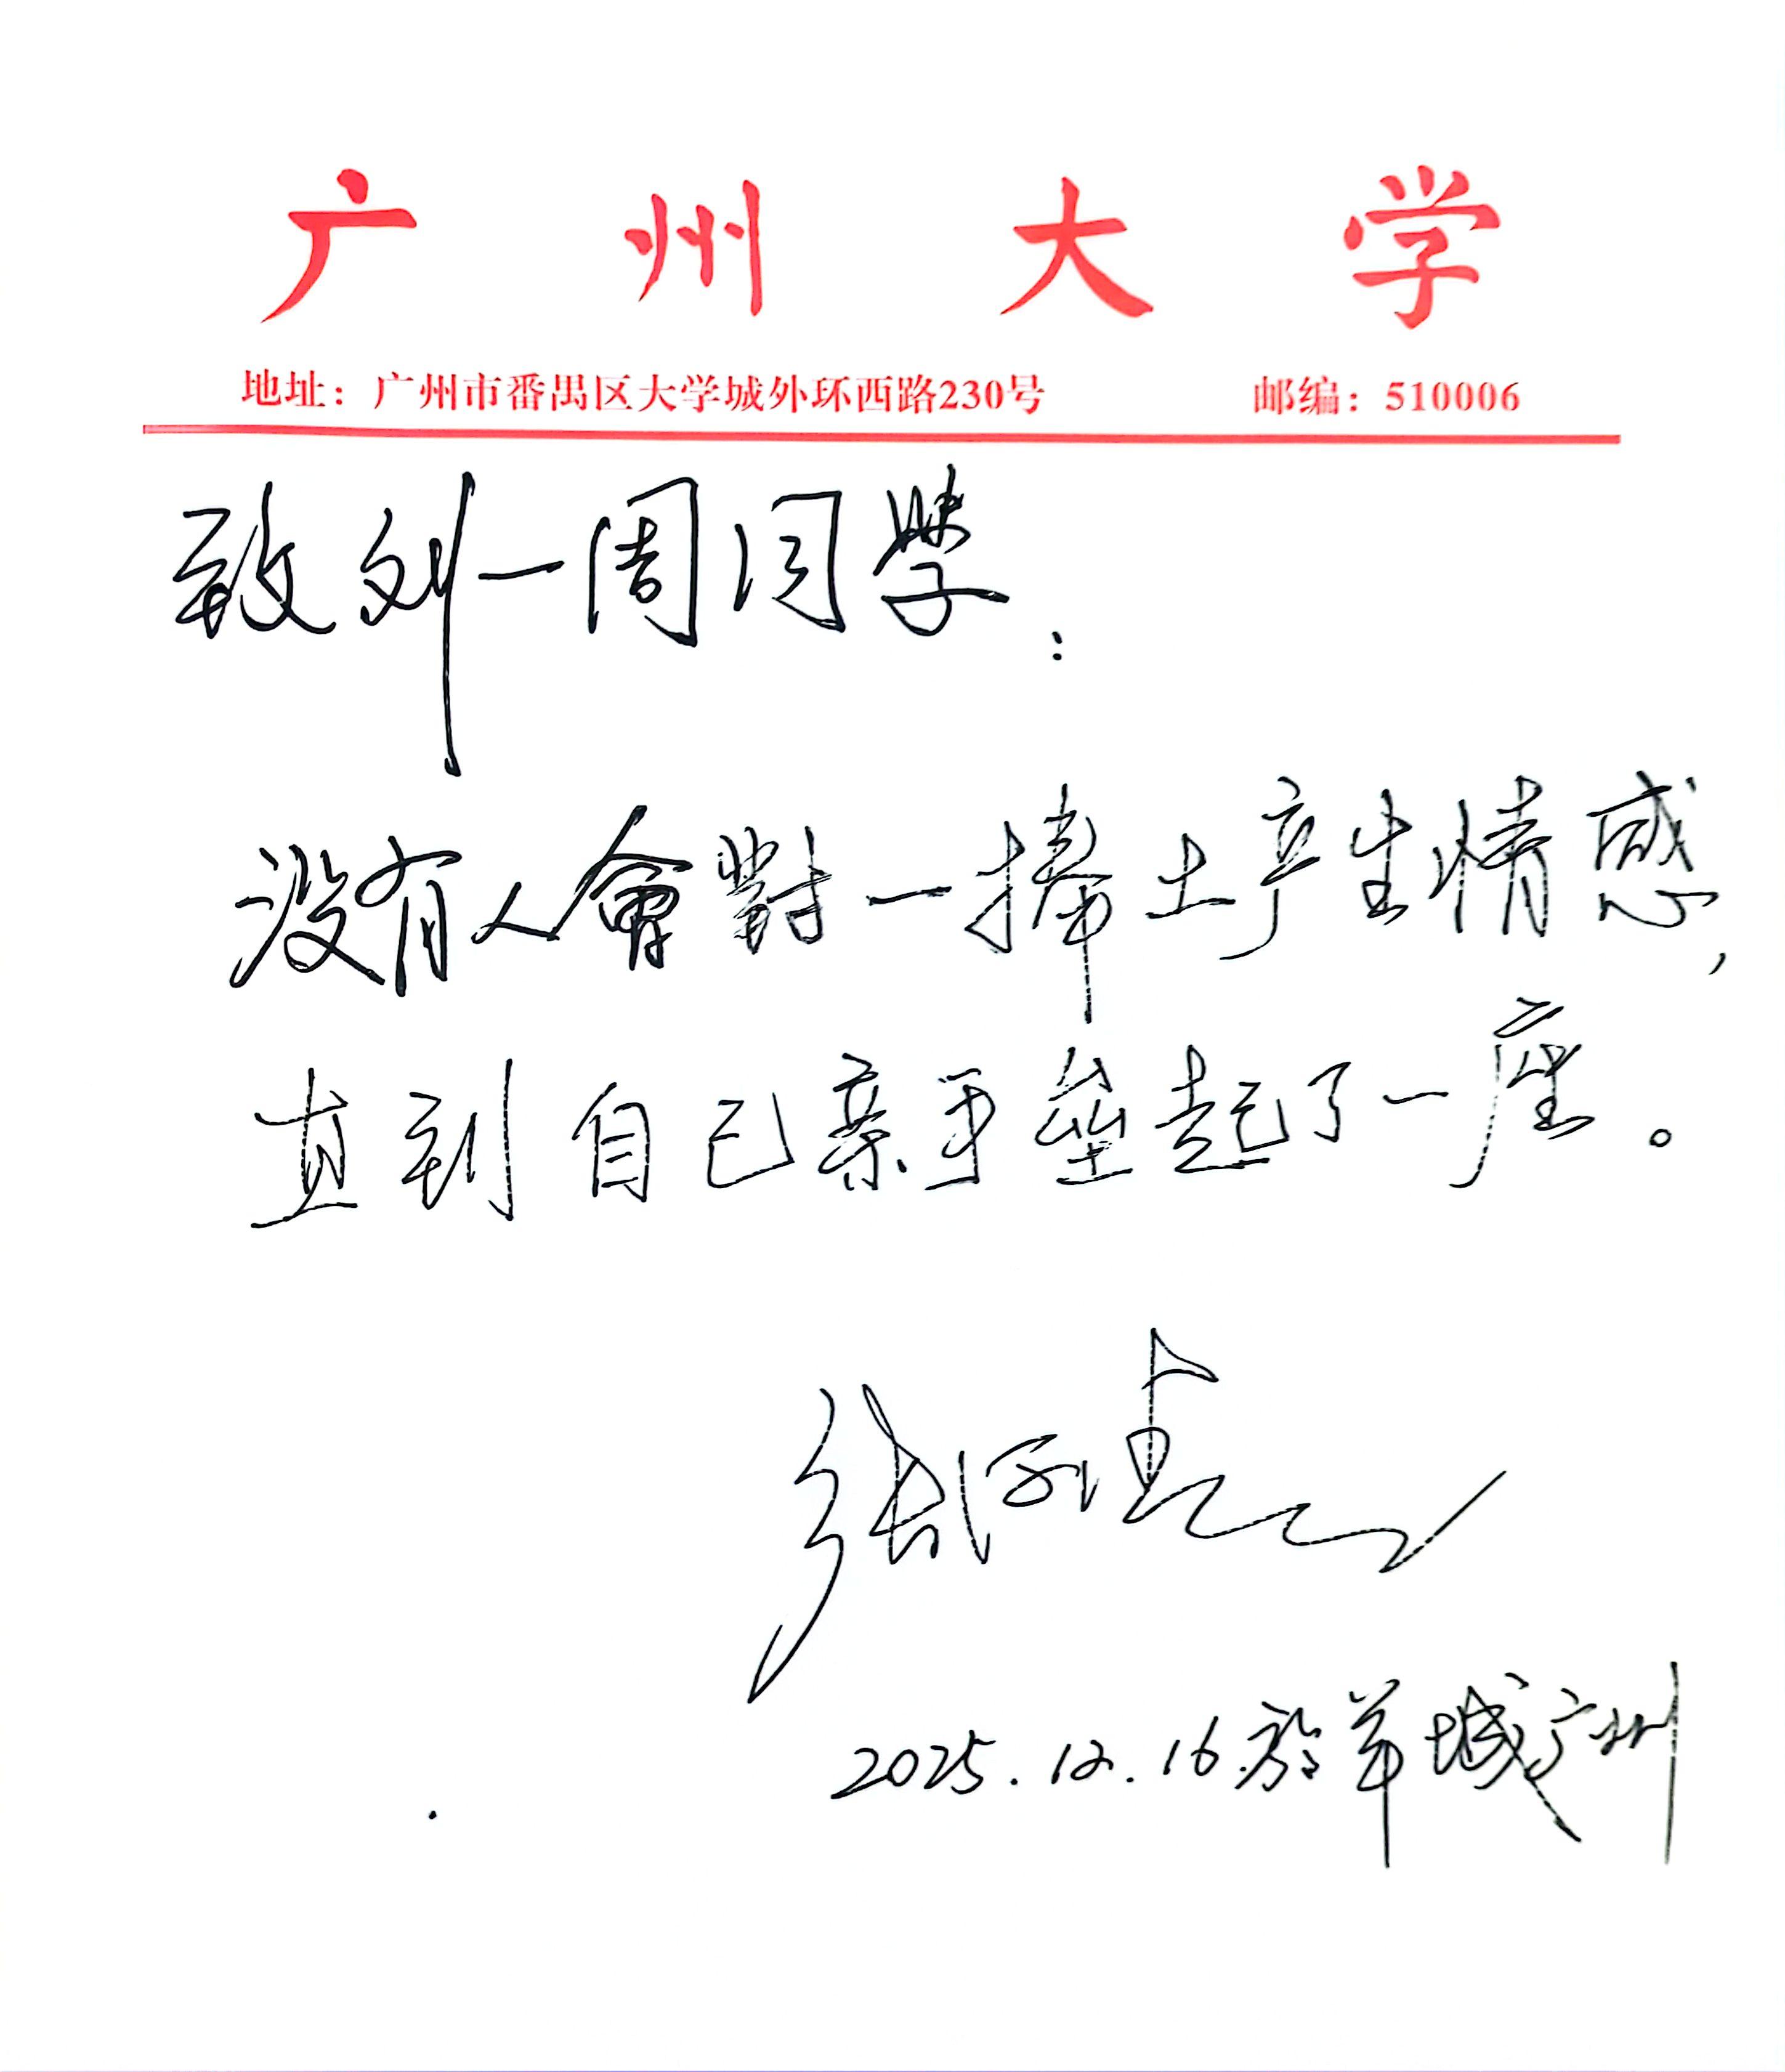 广州大学
地址：广州市番禺区大学城外环西路230号 邮编：510006
致刘一周同学：
没有人會對一捧土产生情感，
直到自己亲手垒起了一座。
2025.12.16.於羊城广州